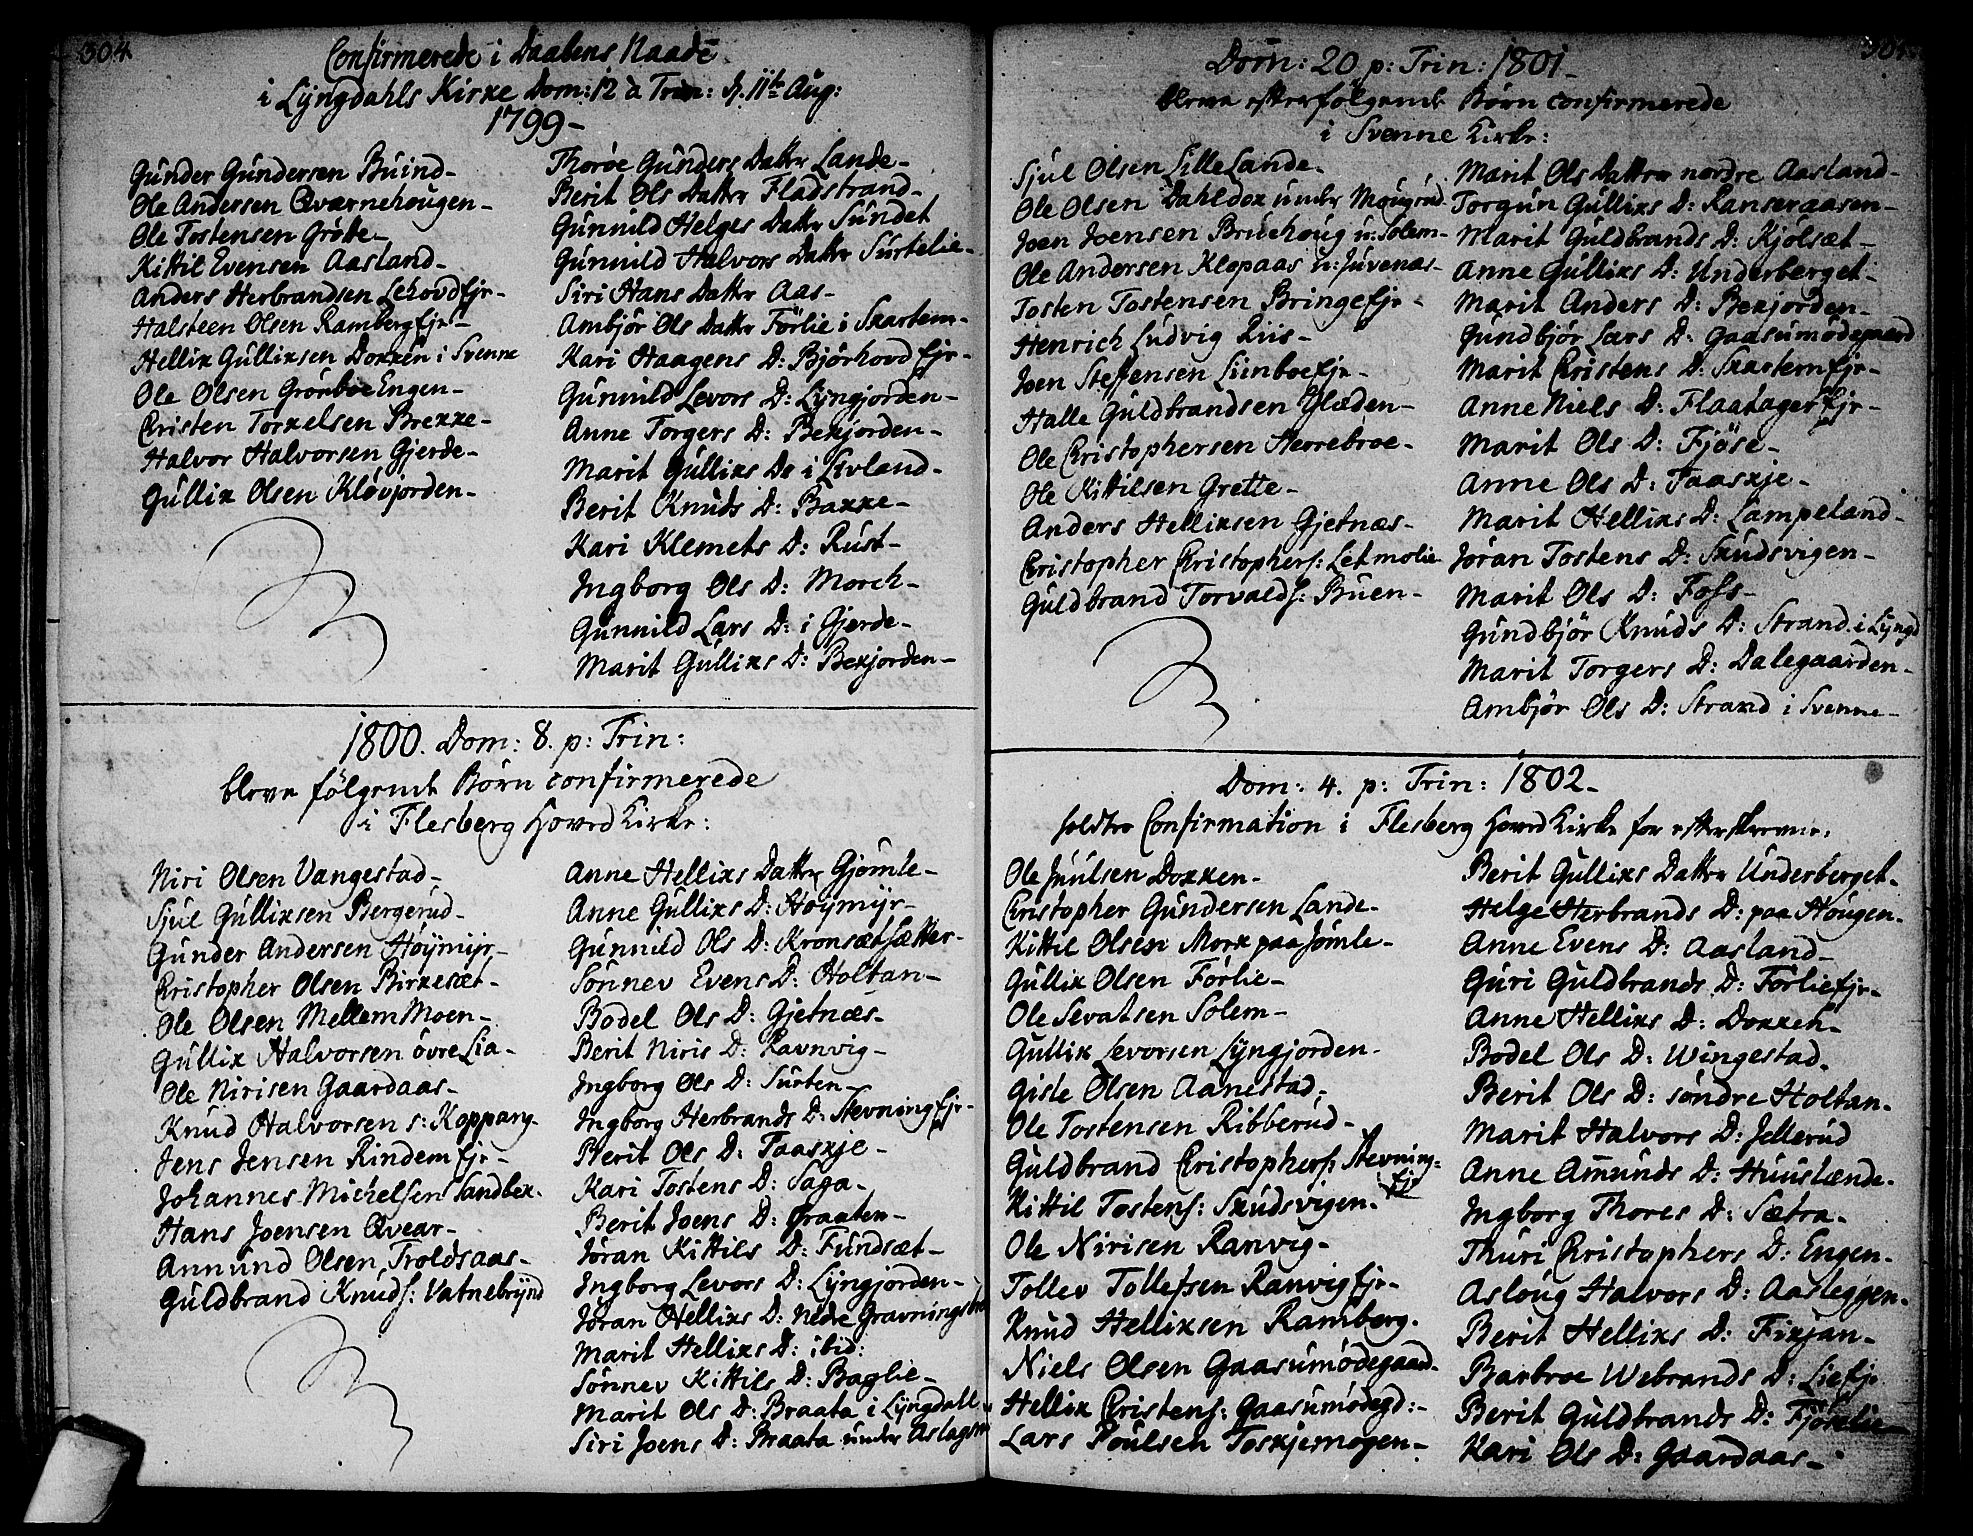 304.
Confirmerede i Daabens Naade
i Lÿngdahls Kirke Dom: 12 à Trin: d. 11te Aug:
1799-
Gunder Gundersen Buind-
Ole Andersen Qværnehougen-
Ole Tostensen Grötte-
Kittil Evensen Aasland-
Anders Herbrandsen Lekovd Ejr-
Halsteen Olsen Ramberg Ejr-
Hellix Gullixsen Doxxen i Svenne
Ole Olsen Grönboe Engen-
Christen Torxelsen Brexxe-
Halvor Halvorsen Gjerde-
Gullix Olsen Klövjorden-
Thoröe Gunders Datter Lande-
Berit Ols Datter Fladstrand-
Gunnild Helges Datter Sundet
Gunnild Halvors Datter Surtelie-
Siri Hans Datter Aas-
Ambjör Ols Datter Förlie i Skartem-
Kari Haagens D: Bjórhovd Ejr-
Gunnild Levors D: Lÿngjorden-
Anne Torgers D: Bexjorden-
Marit Gullixs D: i Livland-
Berit Knuds D: Baxxe-
Kari Klemets D: Rust-
Ingborg Ols D: Morch-
Gunnild Lars D: i Gjerde-
Marit Gullixs D: Bexjorden-
1800. Dom: 8. p: Trin:
bleve fölgende Börn confirmerede
i Flesberg Hoved Kirke:
Niri Olsen Vangestad-
Sjul Gullixsen Bergerud-
Gunder Andersen Höÿmÿr-
Christopher Olsen Birxesæt-
Ole Olsen Mellem Moen-
Gullix Halvorsen övre Lia-
Ole Nirisen Gaardaas-
Knud Halvorsen s: Koppang-
Jens Jensen Rindem Ejr-
Johannes Michelsen Sandbex-
Hans Joensen Qvear-
Amund Olsen Troldsaas-
Guldbrand Knuds: Vatnebrÿnd
Anne Hellixs Datter Gjömle-
Anne Gullixs D: Höÿmÿr-
Gunnild Ols D: Kronsæt Sætter-
Sönnev Evens D: Holtan-
Bodel Ols D: Gjetnæs-
Berit Niris D: Ravnvig-
Ingborg Ols D: Surten-
Ingborg Herbrands D: Stevning Ejr-
Berit Ols D: Faasxje-
Kari Tostens D: Saga-
Berit Joens D: Braaten-
Jöran Kittils D: Fundsæt-
Ingborg Levors D: Lÿngjorden-
Jöran Hellixs D: nedre Gravningsbr
Marit Hellixs D: ibid:
Sönnev Kittils D: Baglie-
Marit Ols D: Braata i Lÿngdall
Siri Joens D: Braata under Aslagsr
Dom: 20 p: Trin: 1801-
bleve efterfölgende Börn confirmerede
i Svenne Kirke:
Sjul Olsen Lille Lande-
Ole Olsen Dahldox under Mougrud
Joen Joensen Bruehoug u: Solem-
Ole Andersen Klopaas u: Juvenæs-
Tosten Tostensen Bringe Ejr-
Henrich Ludvig Riis-
Joen Steffensen Liinboe Ejr-
Halle Guldbrandsen Glæden-
Ole Christophersen Herrebroe-
Ole Kittilsen Grette-
Anders Hellixsen Gjetnæs-
Christopher Christophers: Letmolie
Guldbrand Torvalds: Buen-
Marit Ols Datter nordre Aasland-
Torgun Gullixs D: Ranseraasen-
Marit Guldbrands D: Kjölsæt-
Anne Gullixs D: Underberget-
Marit Anders D: Bexjorden-
Gundbjör Lars D: Gaasumödegaard
Marit Christens D: Skartem Ejr-
Anne Niels D: Flaatager Ejr-
Marit Ols D: Fjöse-
Anne Ols D: Faasxje-
Marit Hellixs D: Lampeland-
Jöran Tostens D: Skudsvigen-
Marit Ols D: Foss-
Gundbjör Knuds D: Strand i Lÿngd
Marit Torgers D: Dalegaarden-
Ambjör Ols D: Strand i Svenne-
Dom: 4. p: Trin: 1802-
holdtes Confirmation i Flesberg Hoved Kirke for efterskrevne:
Ole Juulsen Doxxen-
Christopher Gundersen Lande-
Kittil Olsen Morx paa Jömle-
Gullix Olsen Förlie-
Ole Sevatsen Solem-
Gullix Levorsen Lÿngjorden-
Gisle Olsen Aanestad-
Ole Tostensen Ribberud-
Guldbrand Christophers: Stevning:
Ejr
Kittil Tostens: Skudsvigen-
Ole Nirisen Ranvig-
Tollev Tollefssen Ranvig Ejr-
Knud Hellixsen Ramberg-
Niels Olsen Gaasumödegaard-
Hellix Christens: Gaasumödegd:-
Lars Poulsen Tosxjemogen-
Berit Gullixs Datter Underberget-
Helge Herbrands D: paa Hougen-
Anne Evens D: Aasland-
Guri Guldbrands D: Förlie Ejr-
Anne Hellixs D: Doxxen-
Bodel Ols D: Wingestad-
Berit Ols D: söndre Holtan-
Marit Halvors D: Jellerud
Anne Amunds D: Huuslænde-
Ingborg Thores D: Sætra-
Thuri Christophers D: Engen-
Asloug Halvors D: Aasleggen-
Berit Hellixs D: Fixjan-
Barbroe Webrands D: Lie Ejr
Berit Guldbrands D: Fjöselie
Kari Ols D: Gaardaas-